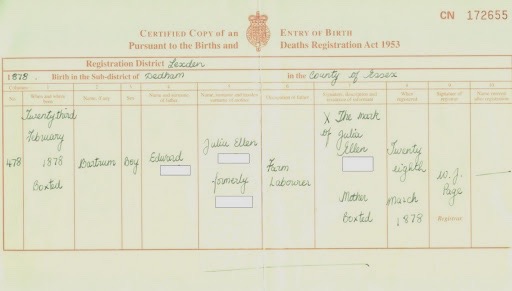 CERTIFIED COPY of an ENTRY OF BIRTH
Pursuant to the Births and Deaths Registration Act 1953
CN 172655
Registration District Lexden
1878. Birth in the Sub-district of Dedham in the County of Essex
No. When and where born Name, if any Sex Name and surname of father Name, surname and maiden surname of mother Occupation of father Signature, description and residence of informant When registered Signature of registrar Name entered after registration
478 Twenty third February 1878 Boxted
Bartrum
Boy
Edward
Julia Ellen
formerly
Farm Labourer
X The mark of Julia Ellen
Mother
Boxted
Twenty eighth March 1878
W. J. Page
Registrar